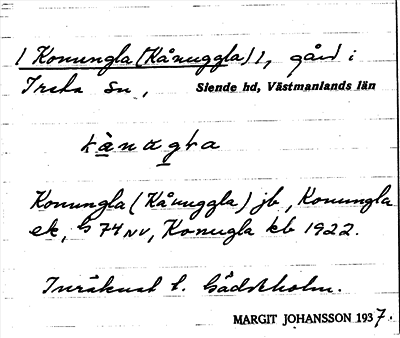 / Konungla (Kånuggla) /, gård i
Irsta sn, Siende hd, Västmanlands län
kànαgla
Konungla (Kånuggla) jb, Konungla
ek, G 74 NV, Konugla kb 1922.
Inräknat t. Gäddeholm.
MARGIT JOHANSSON 1937.